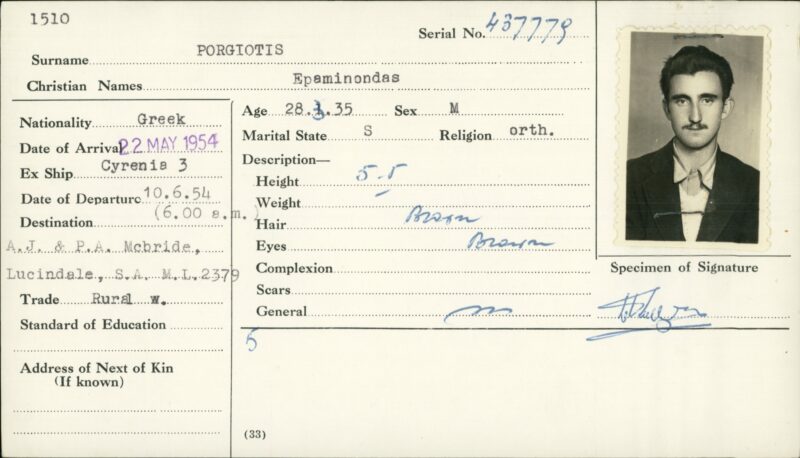 1510
Serial No. 437779
Surname PORGIOTIS
Christian Names Epaminondas
Nationality Greek
Date of Arrival 22 MAY 1954
Ex Ship Cyrenia 3
Date of Departure 10.6.54
(6.00 a.m.)
Destination
A.J. & P.A. Mcbride,
Lucindale, S.A. M.L.2379
Trade Rural w.
Standard of Education
Address of Next of Kin
(If known)
Age 28.3.35 Sex M
Marital State S Religion orth.
Description—
Height 5-5
Weight -
Hair Brown
Eyes Brown
Complexion
Scars
General
5
(33)
Specimen of Signature